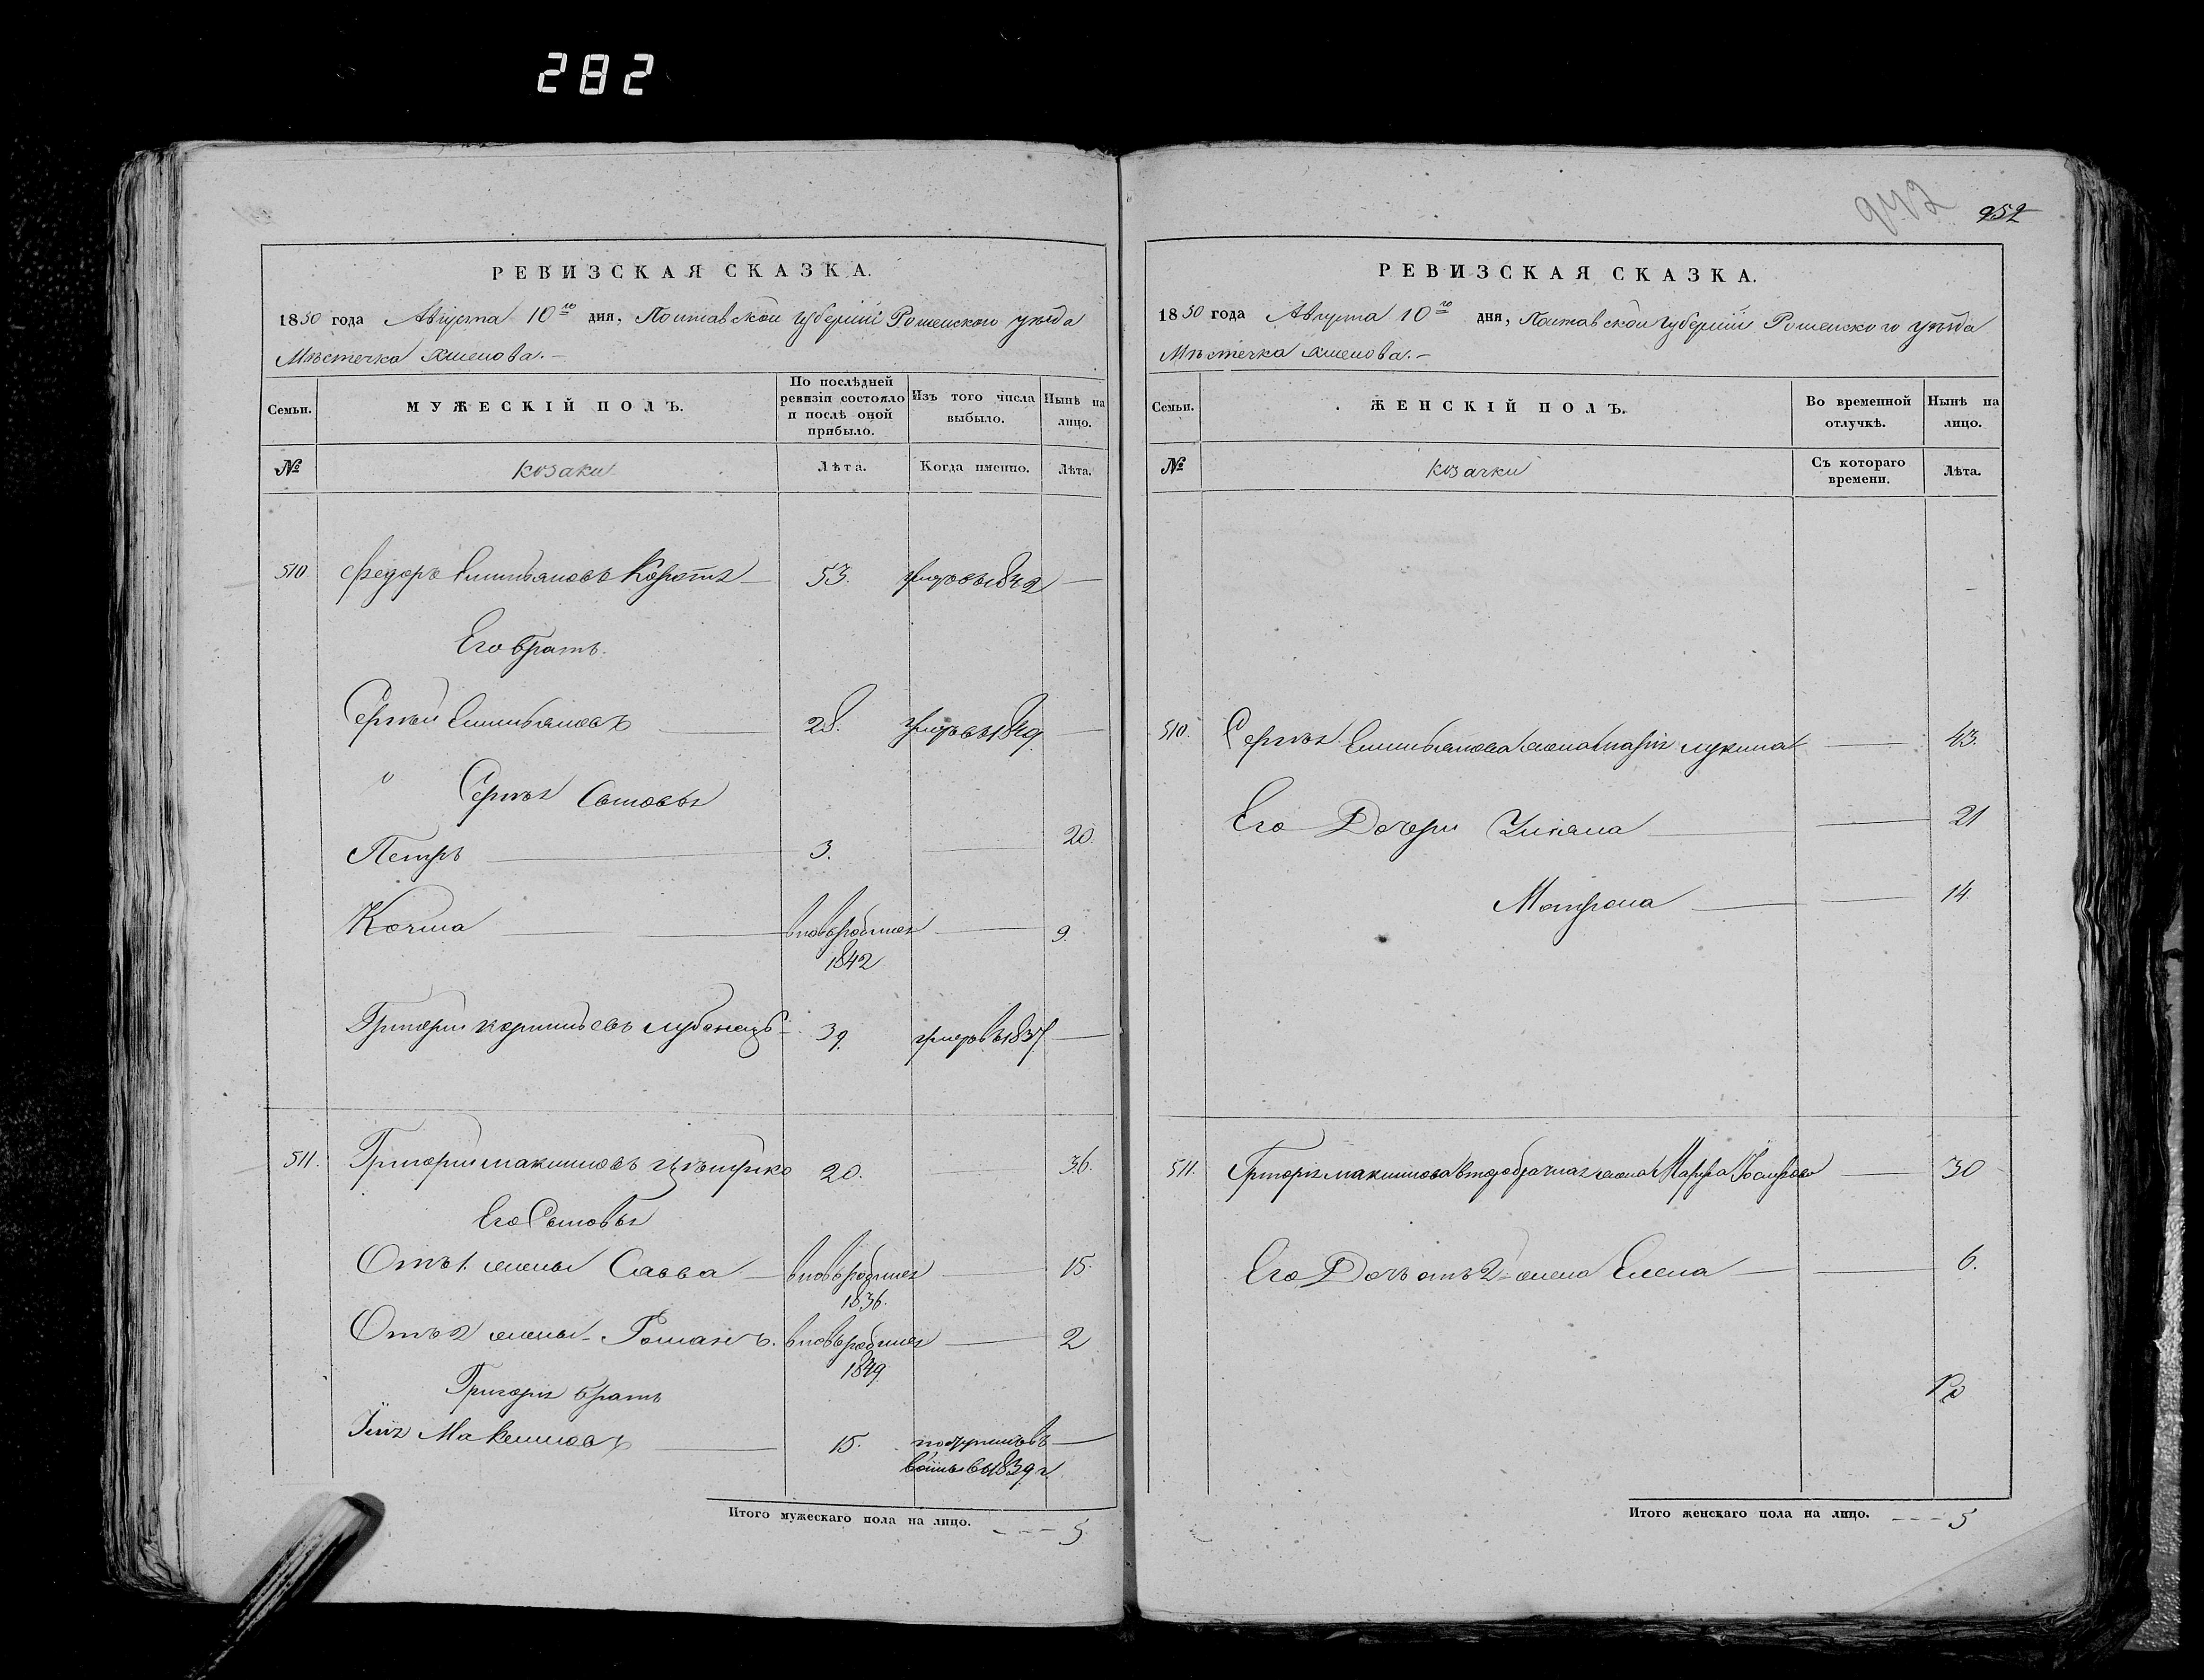 282
942 252
РЕВИЗСКАЯ СКАЗКА.
1850 года Августа 10го дня, Полтавской губерніи Роменского уѣзда
Мѣстечка
Семьи. МУЖЕСКІЙ ПОЛЪ. По послѣдней ревизіи состояло и послѣ оной прибыло. Изъ того числа выбыло. Нынѣ на лицо.
№ козаки Лѣта. Когда именно. Лѣта.
510 Федоръ Емильяновъ 53. умеръ въ 1842 —
Его братъ.
Сергѣй Емильяновъ — 28. умеръ въ 1849. —
" Сергѣя Сыновья
Петръ — 3. — 20.
Козма — вновьродился 1842 — 9.
Григорій лубенецъ 39. умеръ въ 1837 —
511. Григорій максимовъ 20. 36.
Его Сыновья
Отъ 1. жены Савва — вновьродился 1836. — 15.
Отъ 2 жены Романъ. вновьродился 1849. — 2
Григорія братъ
Максимовъ — 15. въ 1839 г.
Итого мужескаго пола на лицо. - - - 5
РЕВИЗСКАЯ СКАЗКА.
1850 года Августа 10го дня, Полтавской губерніи Роменского уѣзда
Мѣстечка
Семьи. ЖЕНСКІЙ ПОЛЪ. Во временной отлучкѣ. Нынѣ на лицо.
№ козачки Съ котораго времени. Лѣта.
510. Сергѣя Емильянова жена — 43.
Его Дочери Ульяна — — 21
Мотрона — — 14.
511. Григорія максимова второбрачная жена — 30
Его Дочь отъ 2 жены Елена — — 6.
Итого женскаго пола на лицо. - - - 5